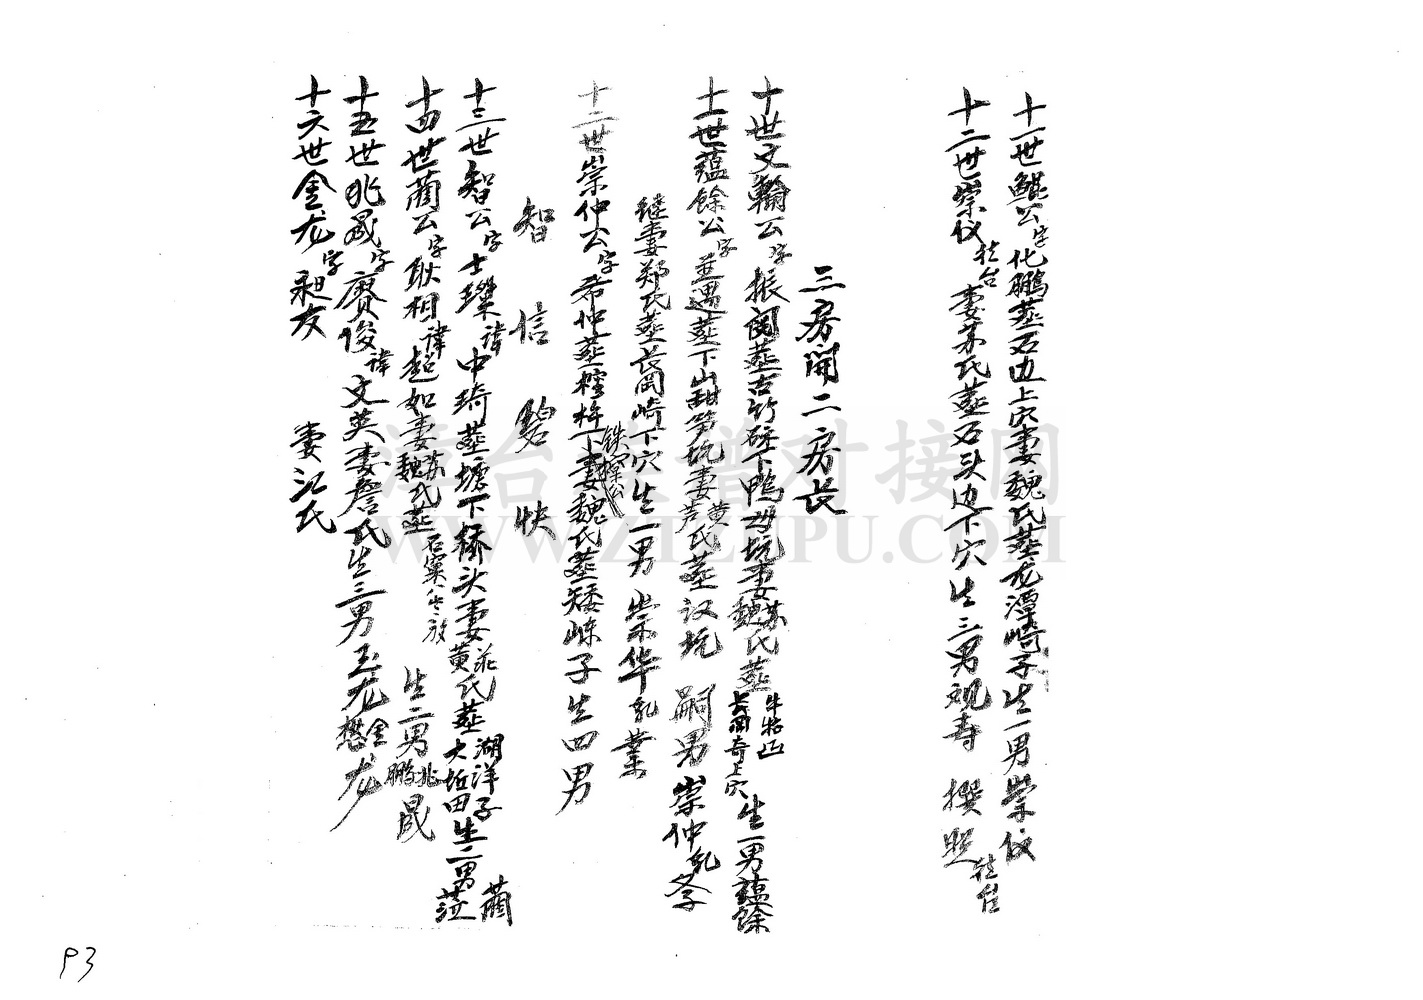 十一世鲲公字化鹏葬石边上穴妻魏氏葬龙潭崎子生一男崇仪
十二世崇仪往台妻苏氏葬石头边下穴生三男观寿撰照往台
三房开二房长
十世文翰公字振闵葬古竹硿下鸭母坑妻苏魏氏葬牛牯凼长岗奇上穴生一男蕴馀
十一世蕴馀公字並遇葬下山甜笋坑妻黄芦氏葬汉坑嗣男崇仲乳冬子
继妻郑氏葬长冈崎下穴生一男崇华乳业
十二世崇仲公字希仲葬樘栋下铁寮公妻魏氏葬矮崠子生四男
智信 快
十三世智公字士璨讳中琦葬塘下桥头妻黄庄氏葬湖洋子大坵田生二男蔄莅
十四世蔄公字耿相讳超如妻苏魏氏葬石窠 生二男兆晟鹏
十五世兆晟字赓俊讳文英妻詹氏生三男玉龙金龙懋龙
十六世金龙字昶友妻江氏
漳台族谱对接网
WWW.ZTZUPU.COM
P3